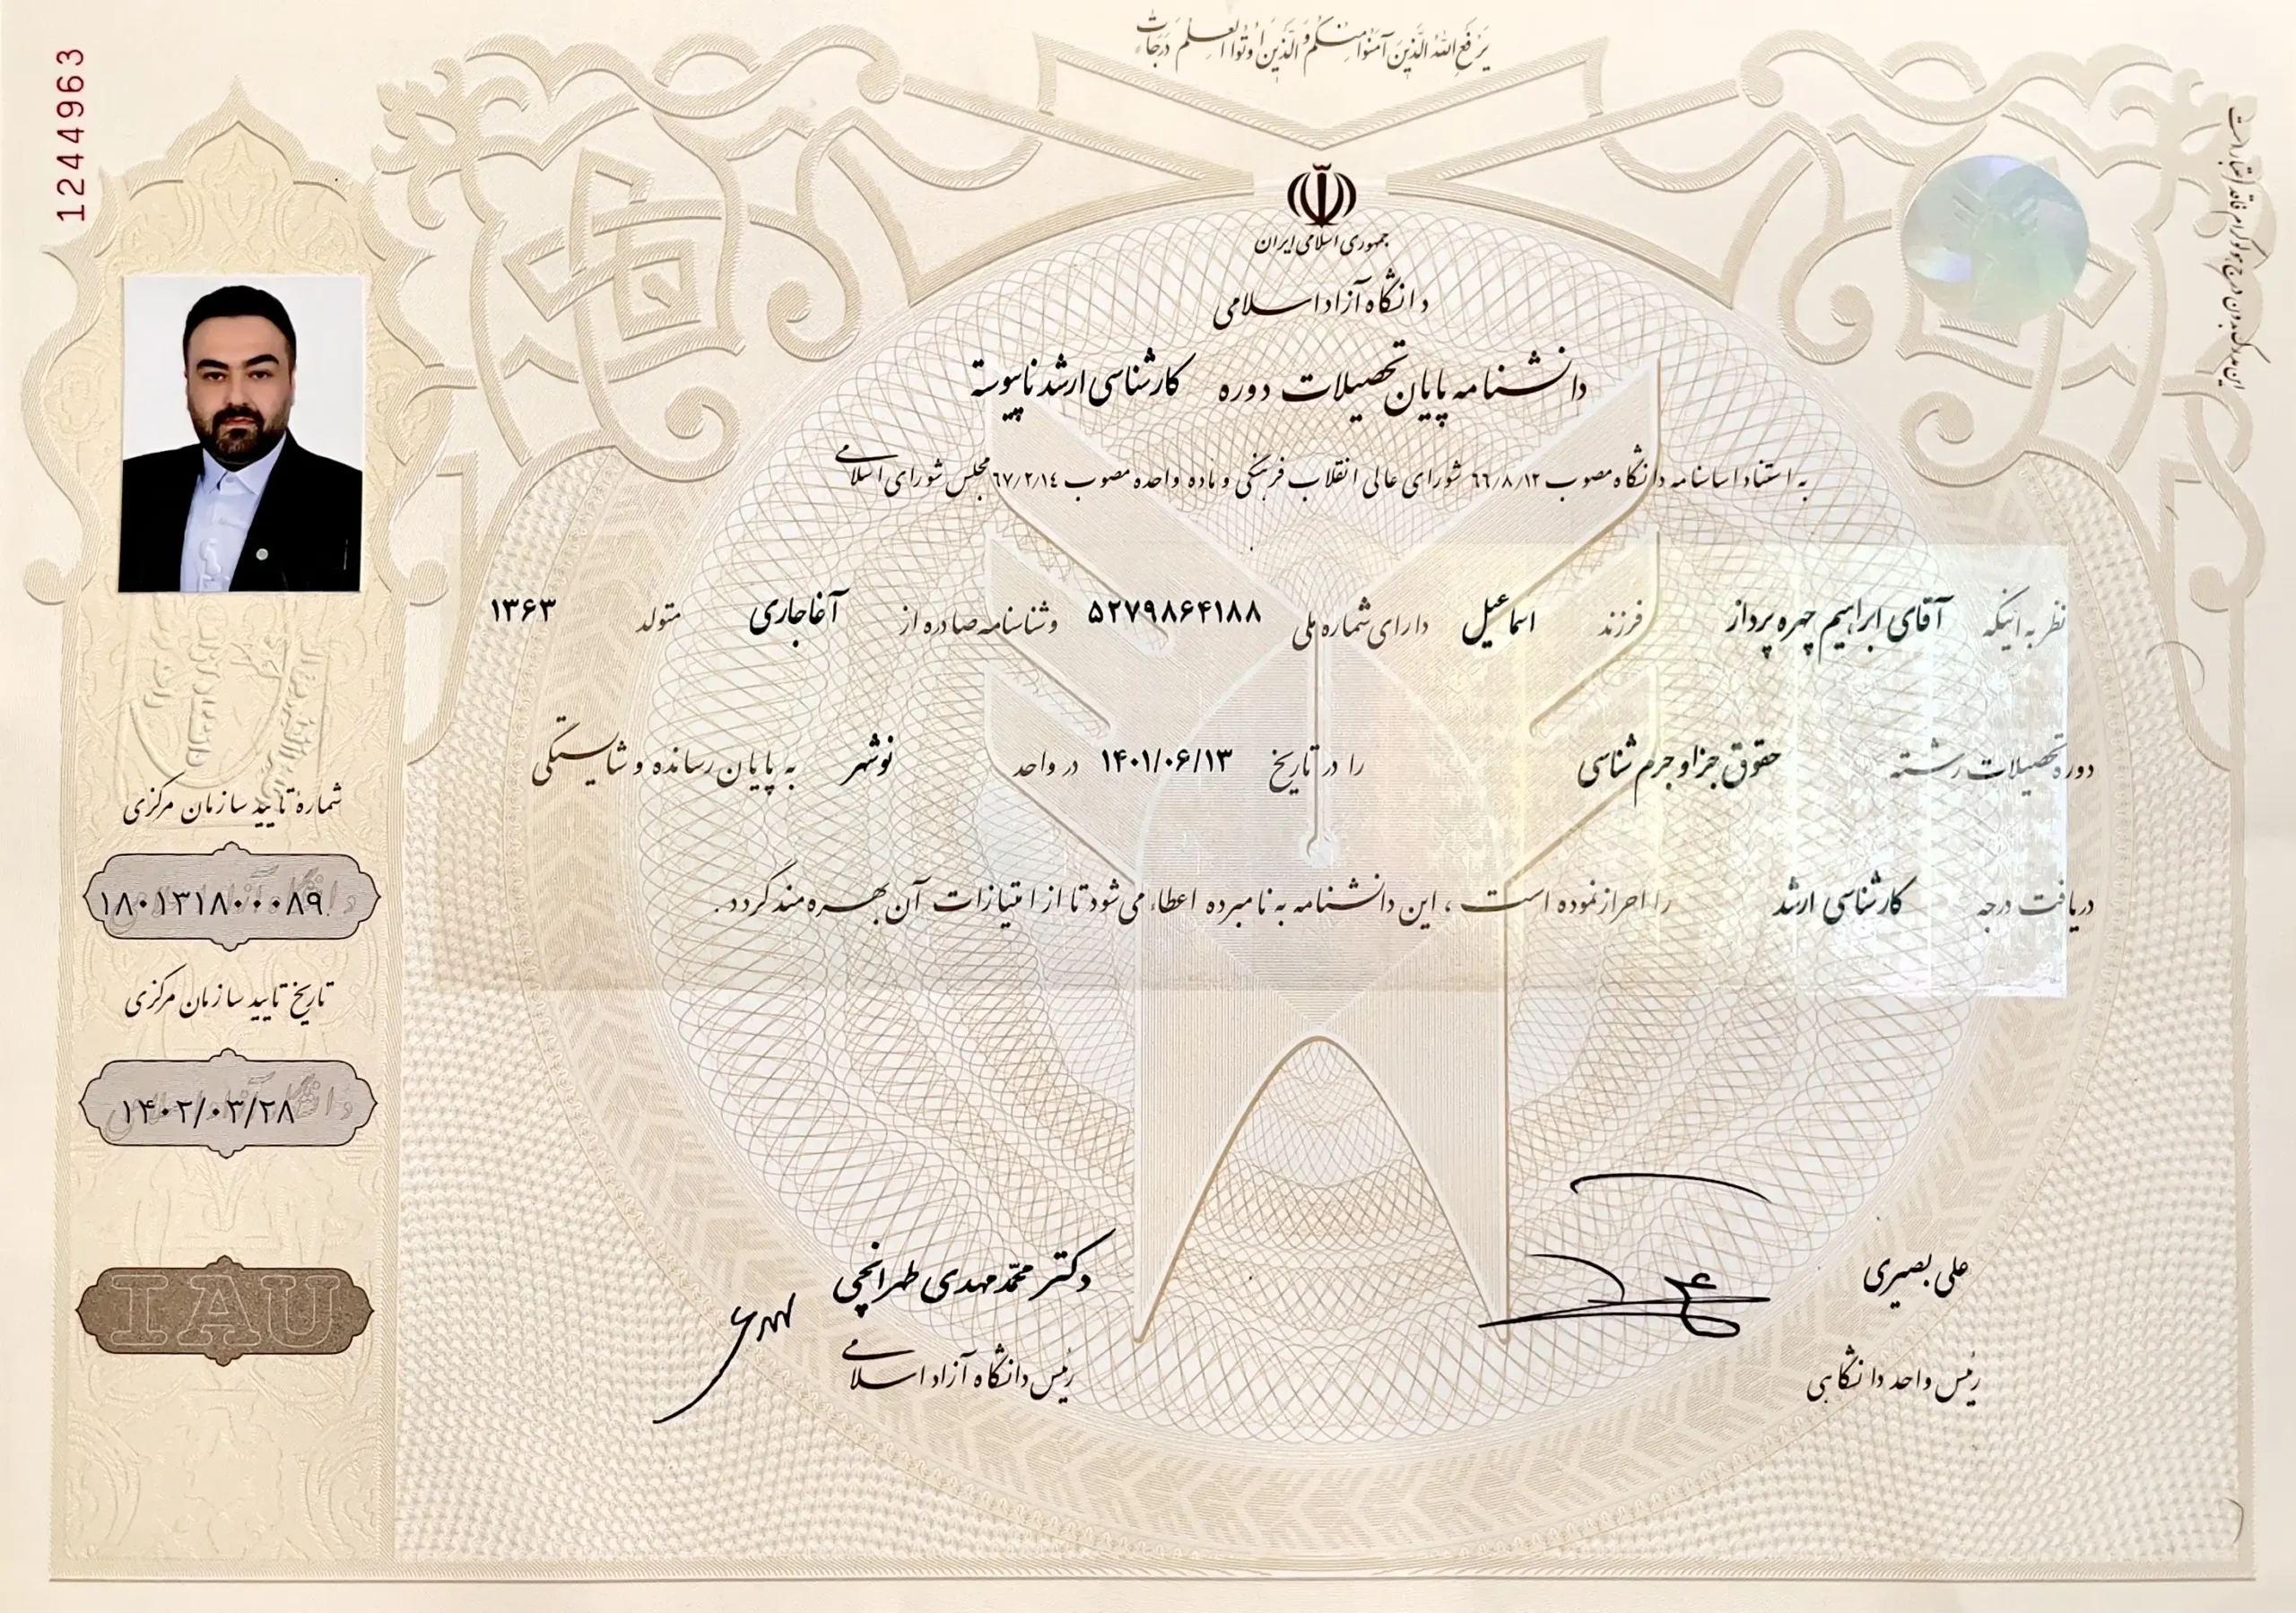 یَرْفَعِ اللهُ الَّذینَ آمَنُوا مِنْکُمْ وَ الَّذینَ اُوتُوا الْعِلْمَ دَرَجات
1244963
این مدرک بدون درج هولوگرام فاقد اعتبار است
جمهوری اسلامی ایران
دانشگاه آزاد اسلامی
دانشنامه پایان تحصیلات دوره کارشناسی ارشد ناپیوسته
به استناد اساسنامه دانشگاه مصوب ٦٦/٨/١٢ شورای عالی انقلاب فرهنگی و ماده واحده مصوب ٦٧/٢/١٤ مجلس شورای اسلامی
نظر به اینکه آقای ابراهیم چهره پرداز فرزند اسماعیل دارای شماره ملی ۵۲۷۹۸۶۴۱۸۸ و شناسنامه صادره از آغاجاری متولد ۱۳۶۳
دوره تحصیلات رشته حقوق جزا و جرم شناسی را در تاریخ ۱۴۰۱/۰۶/۱۳ در واحد نوشهر به پایان رسانده و شایستگی
دریافت درجه کارشناسی ارشد را احراز نموده است ، این دانشنامه به نامبرده اعطاء می شود تا از امتیازات آن بهره مند گردد.
شمارهٔ تایید سازمان مرکزی
۱۸۰۱۳۱۸۰۰۰۸۹
تاریخ تایید سازمان مرکزی
۱۴۰۲/۰۳/۲۸
IAU
علی بصیری
رئیس واحد دانشگاهی
دکتر محمّدمهدی طهرانچی
رئیس دانشگاه آزاد اسلامی